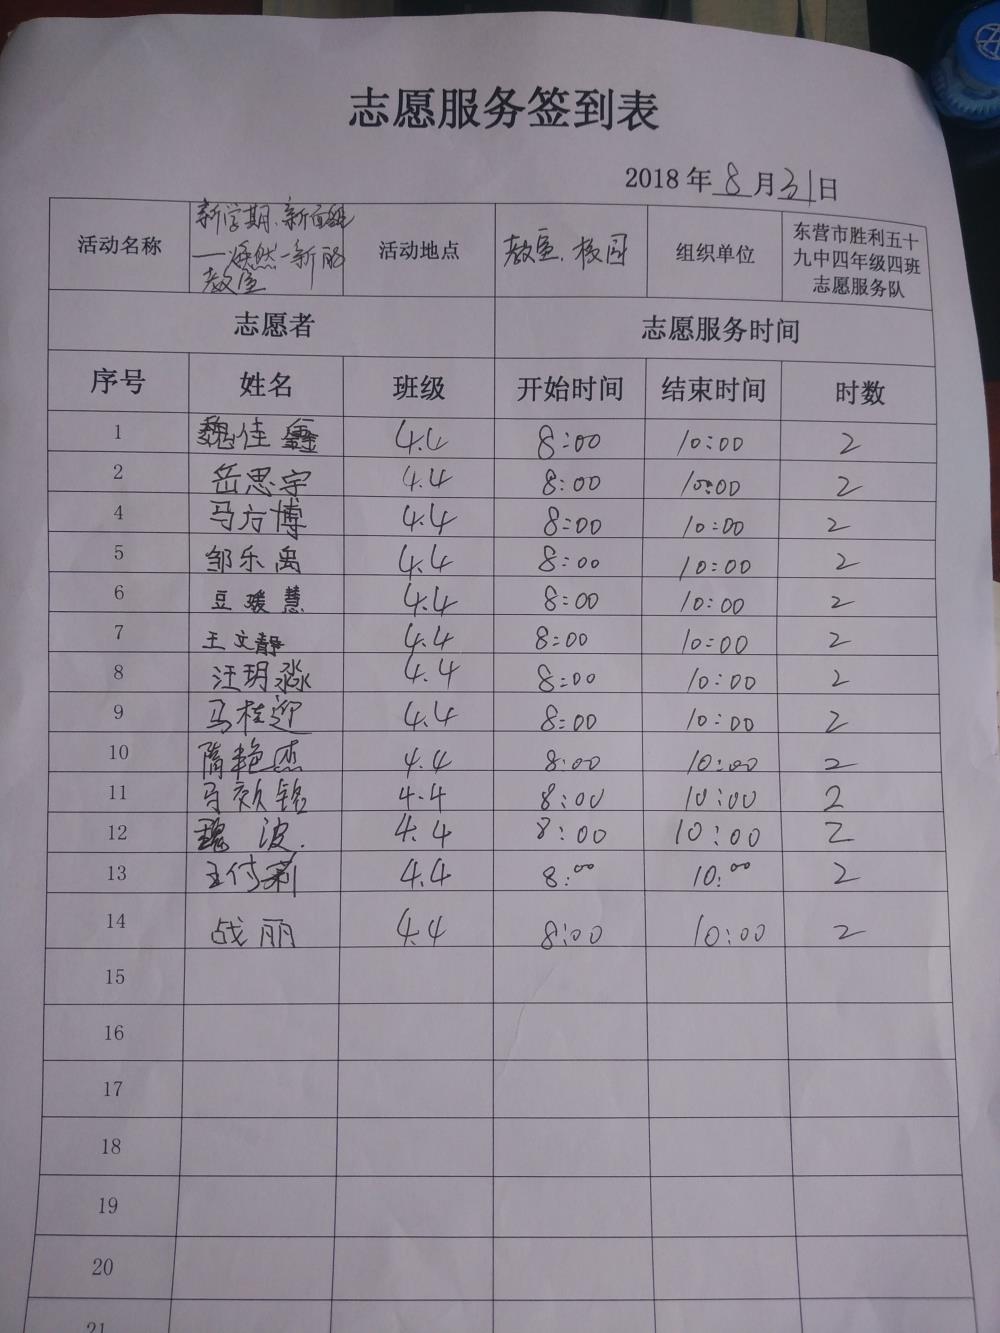 志愿服务签到表
2018 年 8 月 31 日
活动名称 新学期、新面貌 —焕然一新的 教室 活动地点 教室、校园 组织单位 东营市胜利五十九中四年级四班志愿服务队
志愿者 志愿服务时间
序号 姓名 班级 开始时间 结束时间 时数
1 魏佳鑫 4.4 8:00 10:00 2
2 岳思宇 4.4 8:00 10:00 2
4 马方博 4.4 8:00 10:00 2
5 邹乐禹 4.4 8:00 10:00 2
6 豆媛慧 4.4 8:00 10:00 2
7 王文静 4.4 8:00 10:00 2
8 汪玥淼 4.4 8:00 10:00 2
9 马桂迎 4.4 8:00 10:00 2
10 隋艳杰 4.4 8:00 10:00 2
11 马 铭 4.4 8:00 10:00 2
12 魏波 4.4 8:00 10:00 2
13 王付莉 4.4 8:00 10:00 2
14 战丽 4.4 8:00 10:00 2
15
16
17
18
19
20
21